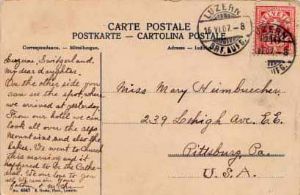 CARTE POSTALE
POSTKARTE - CARTOLINA POSTALE
Correspondance. - Mitteilungen.
LUZERN
16.VI.07.-8
Luzern, Switzerland
my dear daughter.
On the other side you
can see the spot, where
we arrived at yesterday.
From our hotel we can
look all over the alps
mountains and also the
lakes. We went to church
this morning and it
happened to be the Cathe-
dral.
Miss Mary Heimbuecher
239 Lehigh Ave. E.E.
Pittsburg Pa.
U.S.A.